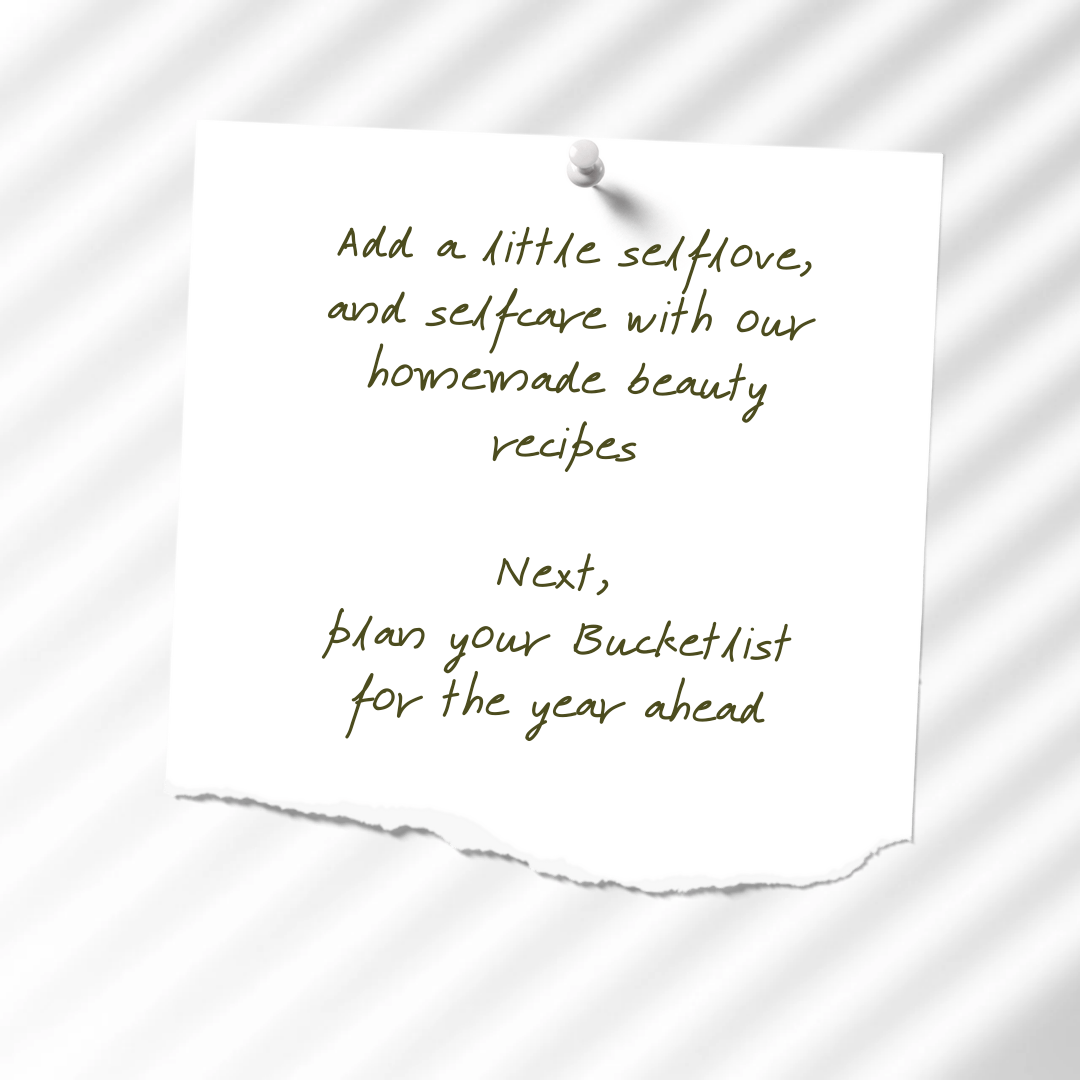 Add a little selflove,
and selfcare with our
homemade beauty
recipes
Next,
plan your Bucketlist
for the year ahead